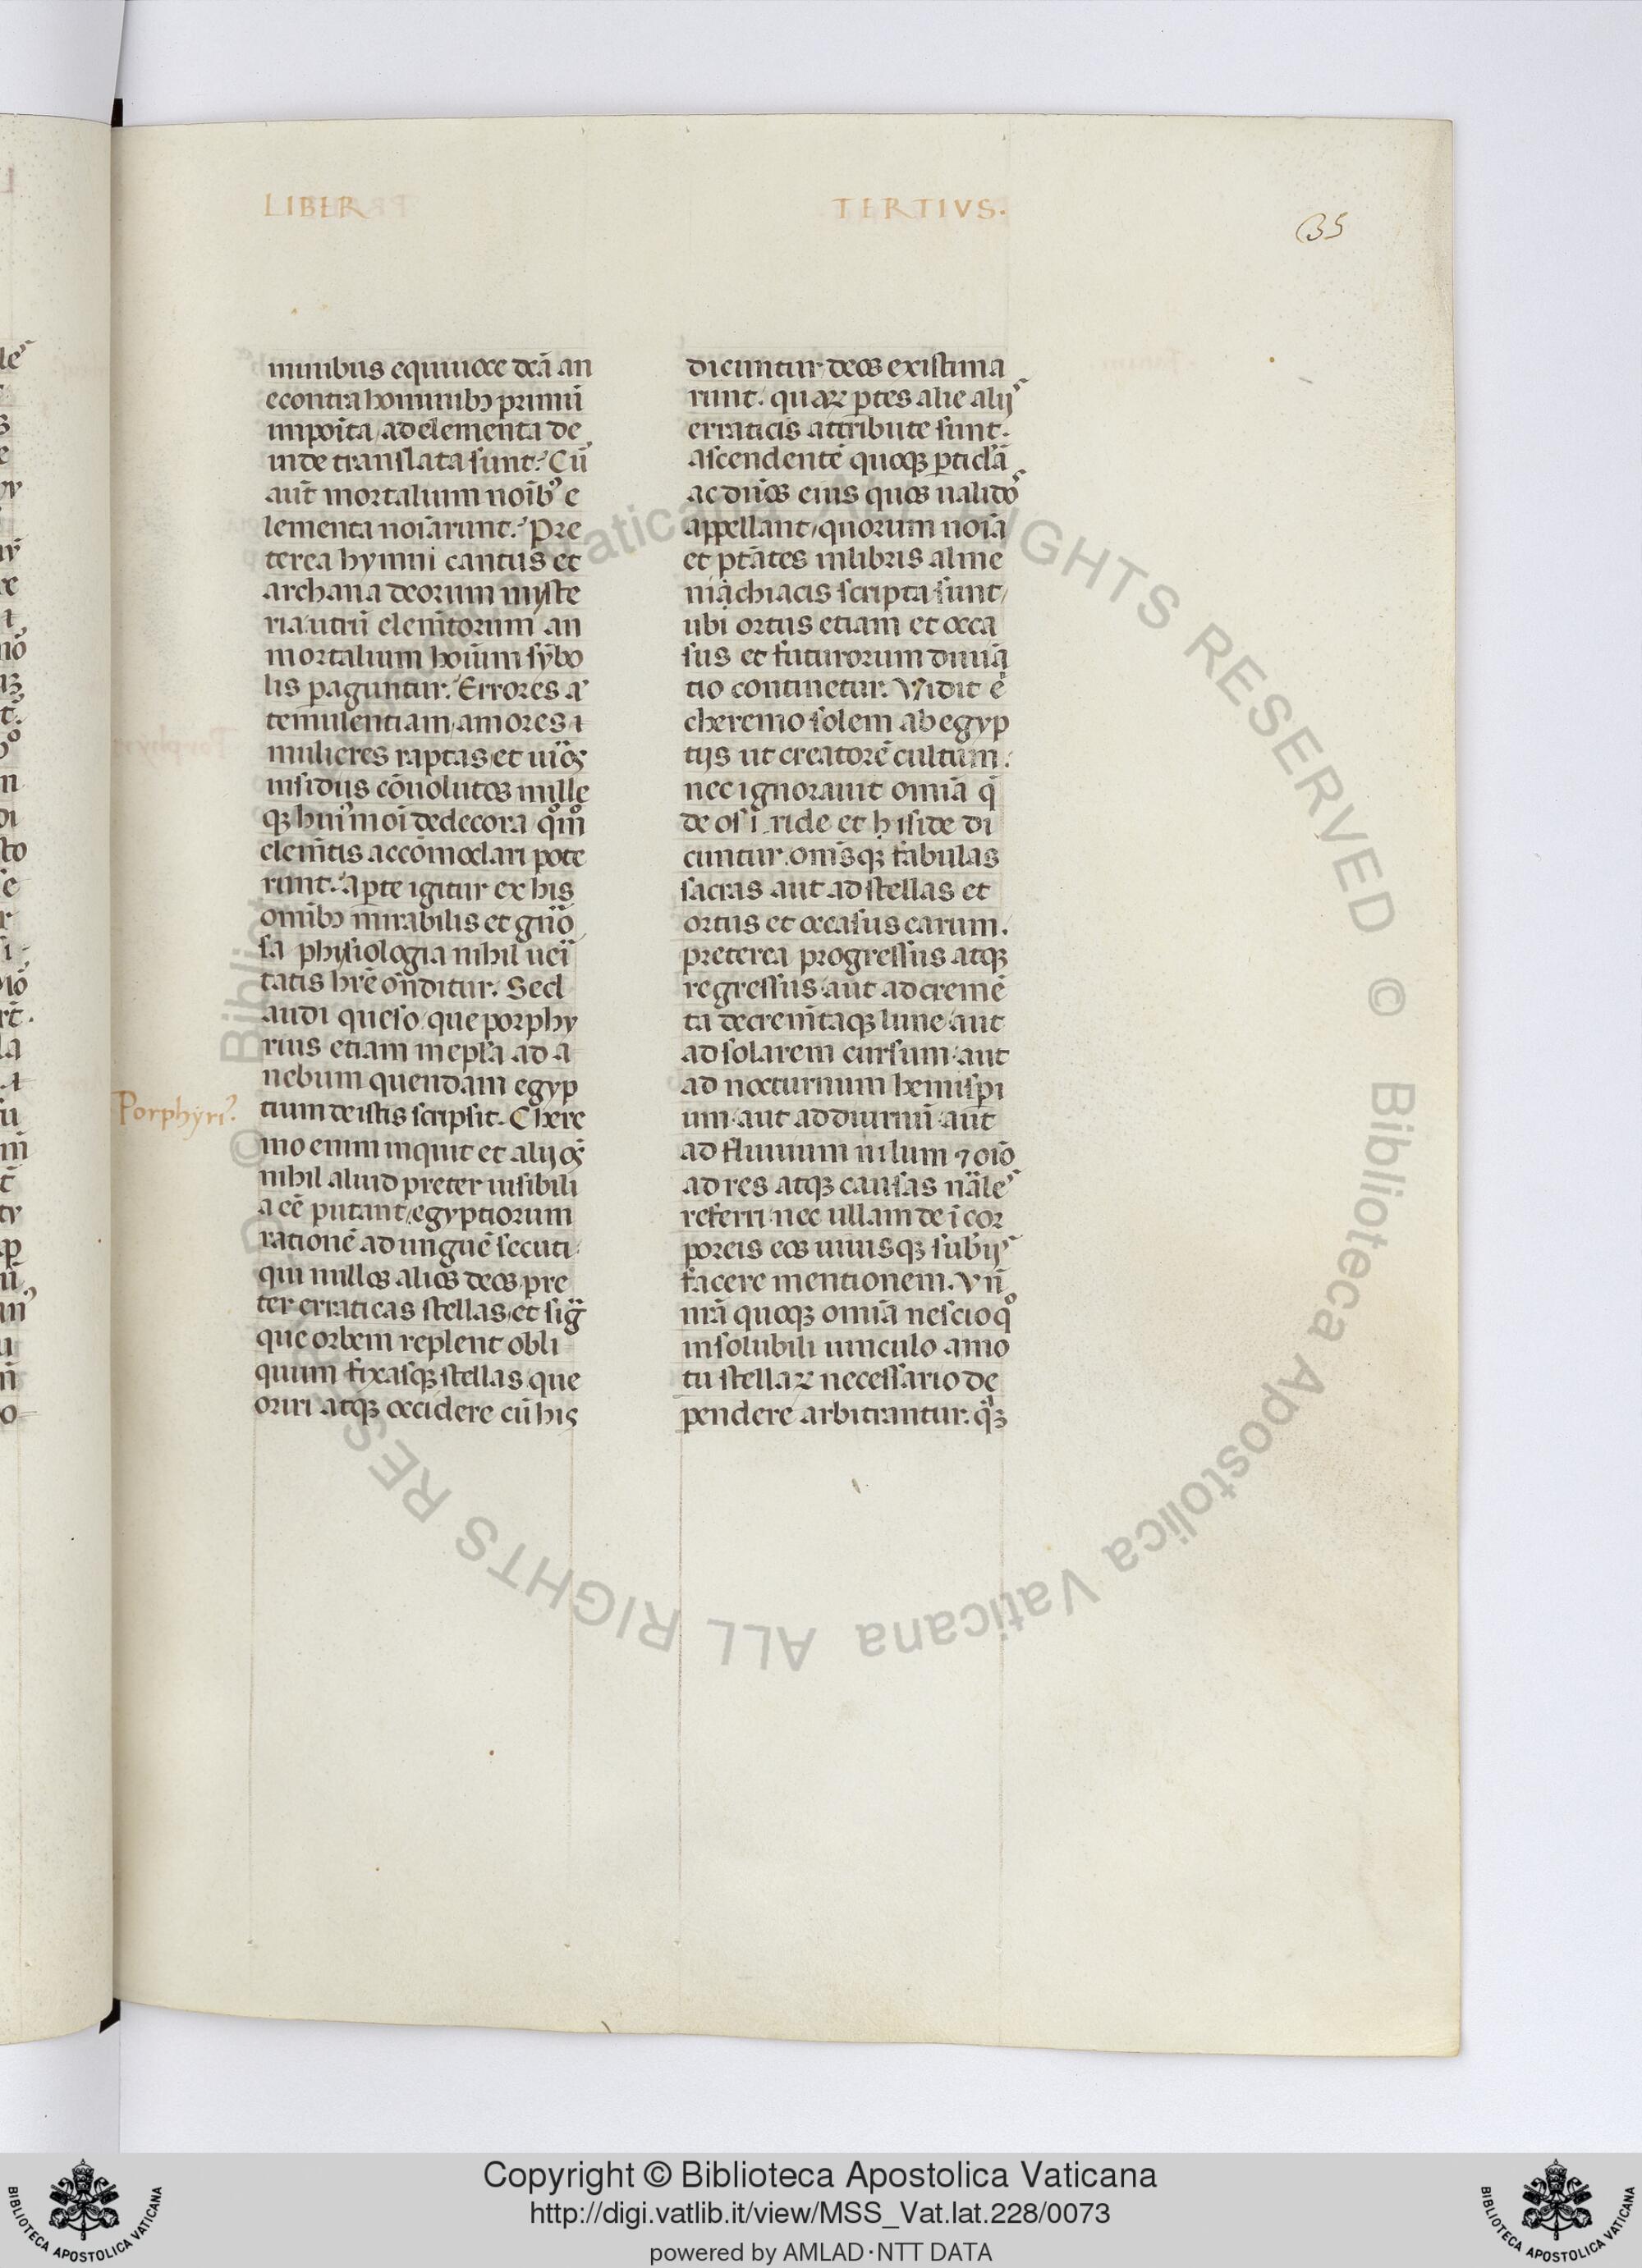 LIBER TERTIVS.
35
minibus equiuoce dcā an
econtra hominibꝫ primū
imposita ad elementa de
inde translata sunt. Cū
aut̄ mortalium noīb᾽ e
lementa noīarunt. Pre
terea hymni cantus et
archana deorum myste
ria utrū elem̄torum an
mortalium hoīum sȳbo
lis paguntur. Errores a᾽
temulentiam amores ⁊
mulieres raptas et uiꝛos
insidiis cōuolutos mille
qꝫ hui᾽moī dedecora quō
elem̄tis accōmodari pote
runt. Aperte igitur ex his
omībꝫ mirabilis et gn̄o
sa physiologia nihil ueri
tatis hr̄e on̄ditur. Sed
audi queso que porphy
rius etiam in epl̄a ad a
nebum quendam egyp
Porphyri᾽.
tium de istis scripsit. Chere
mo enim inquit et alij q̄
nihil aliud preter uisibili
a eē putant egyptiorum
rationē ad unguē secuti
qui nullos alios deos pre
ter erraticas stellas et siḡ
que orbem replent obli
quum fixasqꝫ stellas que
oriri atqꝫ occidere cū his
dicuntur deos existima
runt. quaꝝ ꝑtes alie alij᾽
erraticis attribute sunt.
ascendentē quoqꝫ ꝑticlā
ac dn̄os eius quos ualido᾽
appellant quorum noīa
et ptātes in libris alme
niachiacis scripta sunt
ubi ortus etiam et occa
sus et futurorum diuīa
tio continetur. Vidit ē
cheremo solem ab egyp
tijs ut creatorē cultum.
nec ignorauit omīa q̄
de osi ride et hiside di
cuntur. omīsqꝫ fabulas
sacras aut ad stellas et
ortus et occasus earum.
preterea progressus atqꝫ
regressus aut ad cremē
ta decrem̄taqꝫ lune aut
ad solarem cursum aut
ad nocturnum hemispi
um aut ad diurnū aut
ad fluuium nilum ⁊ oīo
ad res atqꝫ causas nāle᾽
referri nec ullam de i cor
poreis eos uiuisqꝫ sub̄ij᾽
facere mentionem. Vn̄
nr̄a quoqꝫ omīa nescio qͦ
insolubili uinculo a mo
tu stellaꝝ necessario de
pendere arbitrantur. qͥꝫ
© Biblioteca Apostolica Vaticana ALL RIGHTS RESERVED
Copyright © Biblioteca Apostolica Vaticana
http://digi.vatlib.it/view/MSS_Vat.lat.228/0073
powered by AMLAD·NTT DATA
BIBLIOTECA APOSTOLICA VATICANA
BIBLIOTECA APOSTOLICA VATICANA